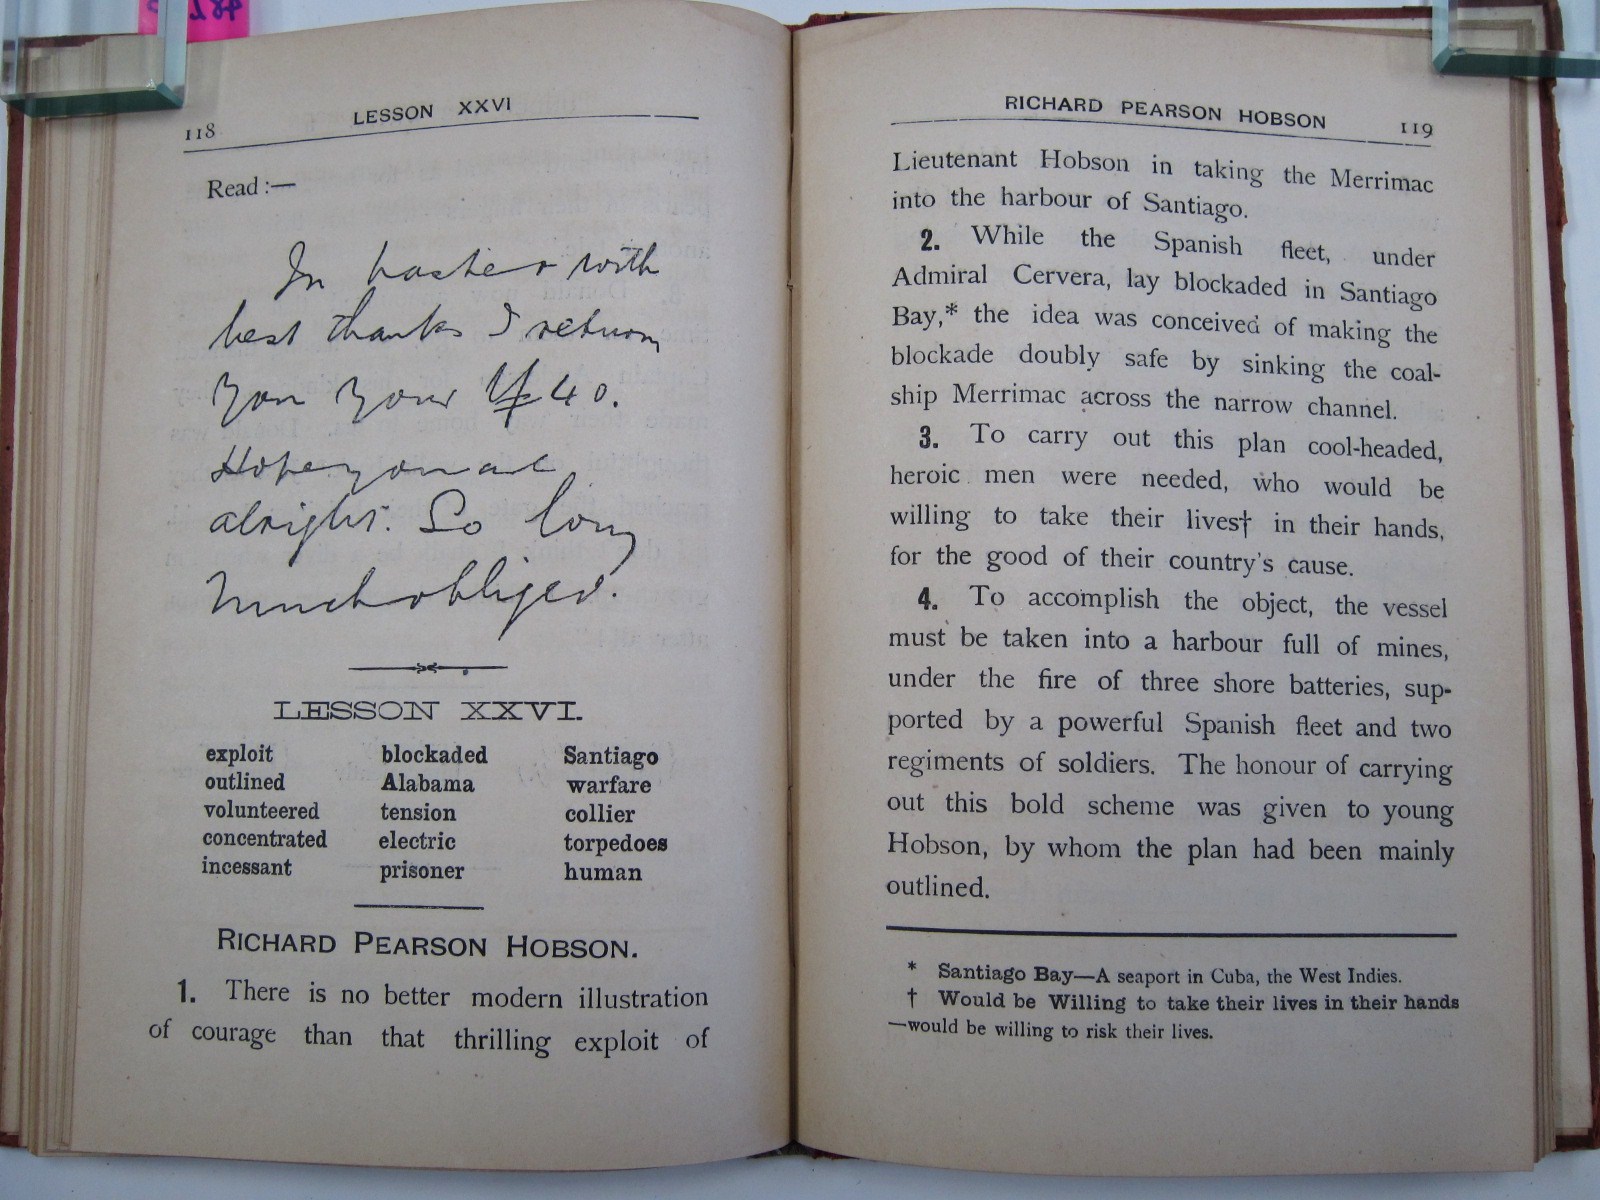 118 LESSON XXVI
Read:—
In haste & with
best thanks I return
you your ¥40.
Hope you are
alright. So long
Much obliged.
LESSON XXVI.
exploit blockaded Santiago
outlined Alabama warfare
volunteered tension collier
concentrated electric torpedoes
incessant prisoner human
RICHARD PEARSON HOBSON.
1. There is no better modern illustration
of courage than that thrilling exploit of
RICHARD PEARSON HOBSON 119
Lieutenant Hobson in taking the Merrimac
into the harbour of Santiago.
2. While the Spanish fleet, under
Admiral Cervera, lay blockaded in Santiago
Bay,* the idea was conceived of making the
blockade doubly safe by sinking the coal-
ship Merrimac across the narrow channel.
3. To carry out this plan cool-headed,
heroic men were needed, who would be
willing to take their lives† in their hands,
for the good of their country's cause.
4. To accomplish the object, the vessel
must be taken into a harbour full of mines,
under the fire of three shore batteries, sup-
ported by a powerful Spanish fleet and two
regiments of soldiers. The honour of carrying
out this bold scheme was given to young
Hobson, by whom the plan had been mainly
outlined.
* Santiago Bay—A seaport in Cuba, the West Indies.
† Would be Willing to take their lives in their hands
—would be willing to risk their lives.